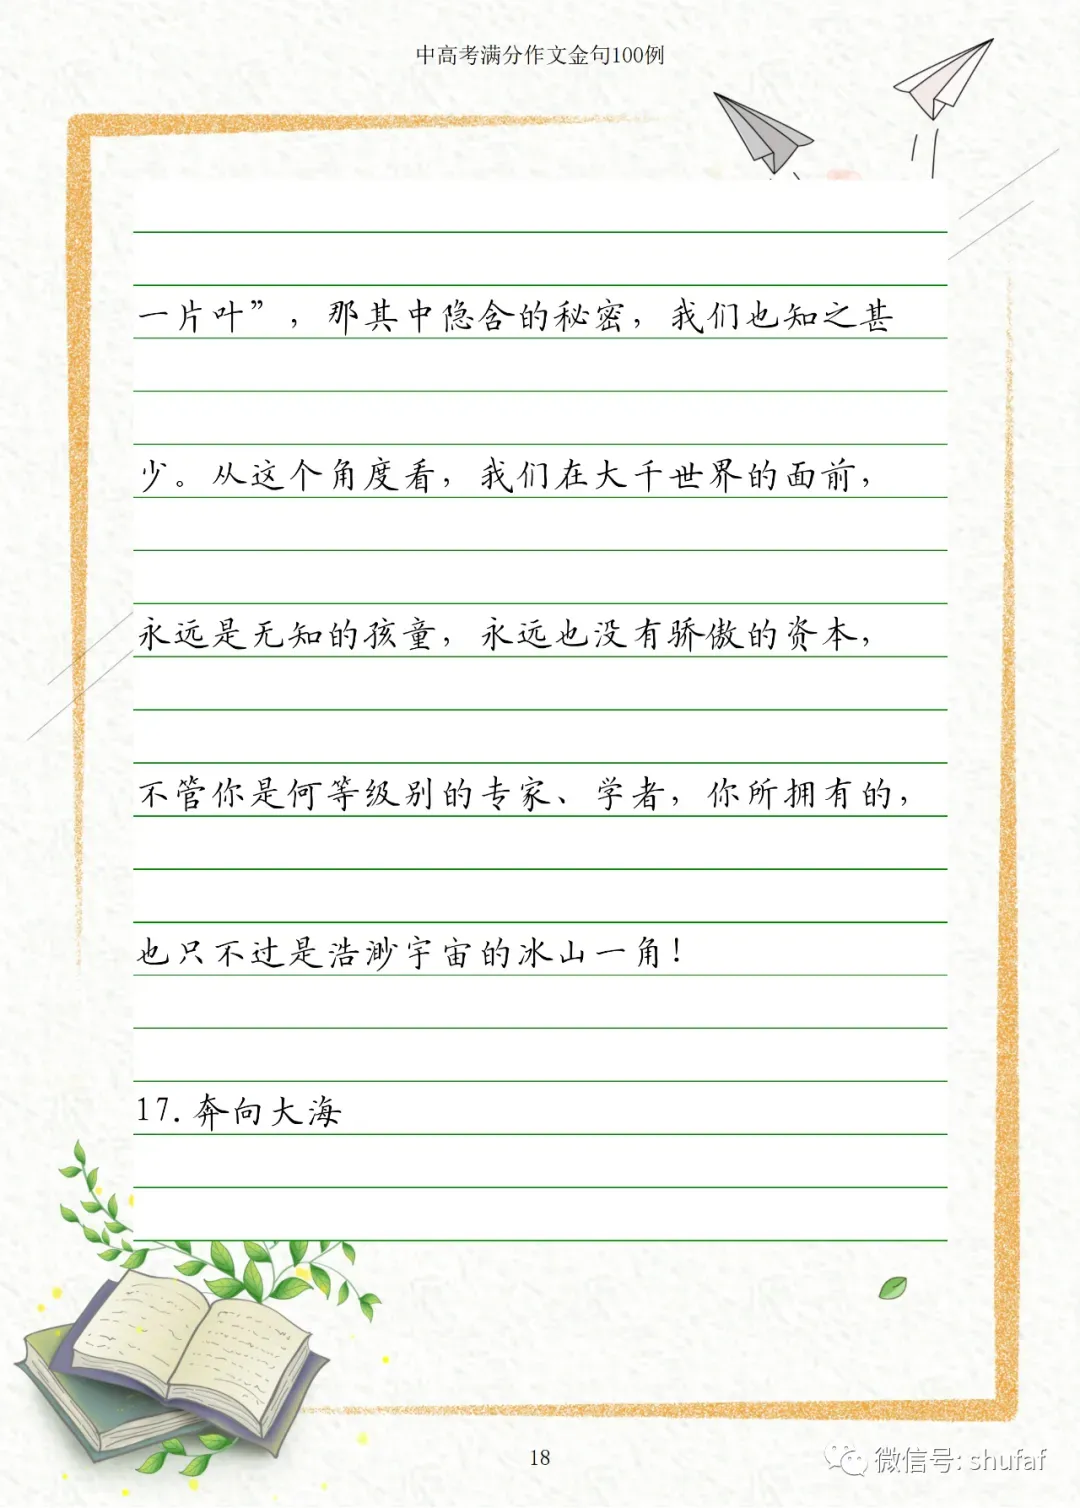 中高考满分作文金句100例
一片叶”，那其中隐含的秘密，我们也知之甚
少。从这个角度看，我们在大千世界的面前，
永远是无知的孩童，永远也没有骄傲的资本，
不管你是何等级别的专家、学者，你所拥有的，
也只不过是浩渺宇宙的冰山一角！
17.奔向大海
18
微信号: shufaf